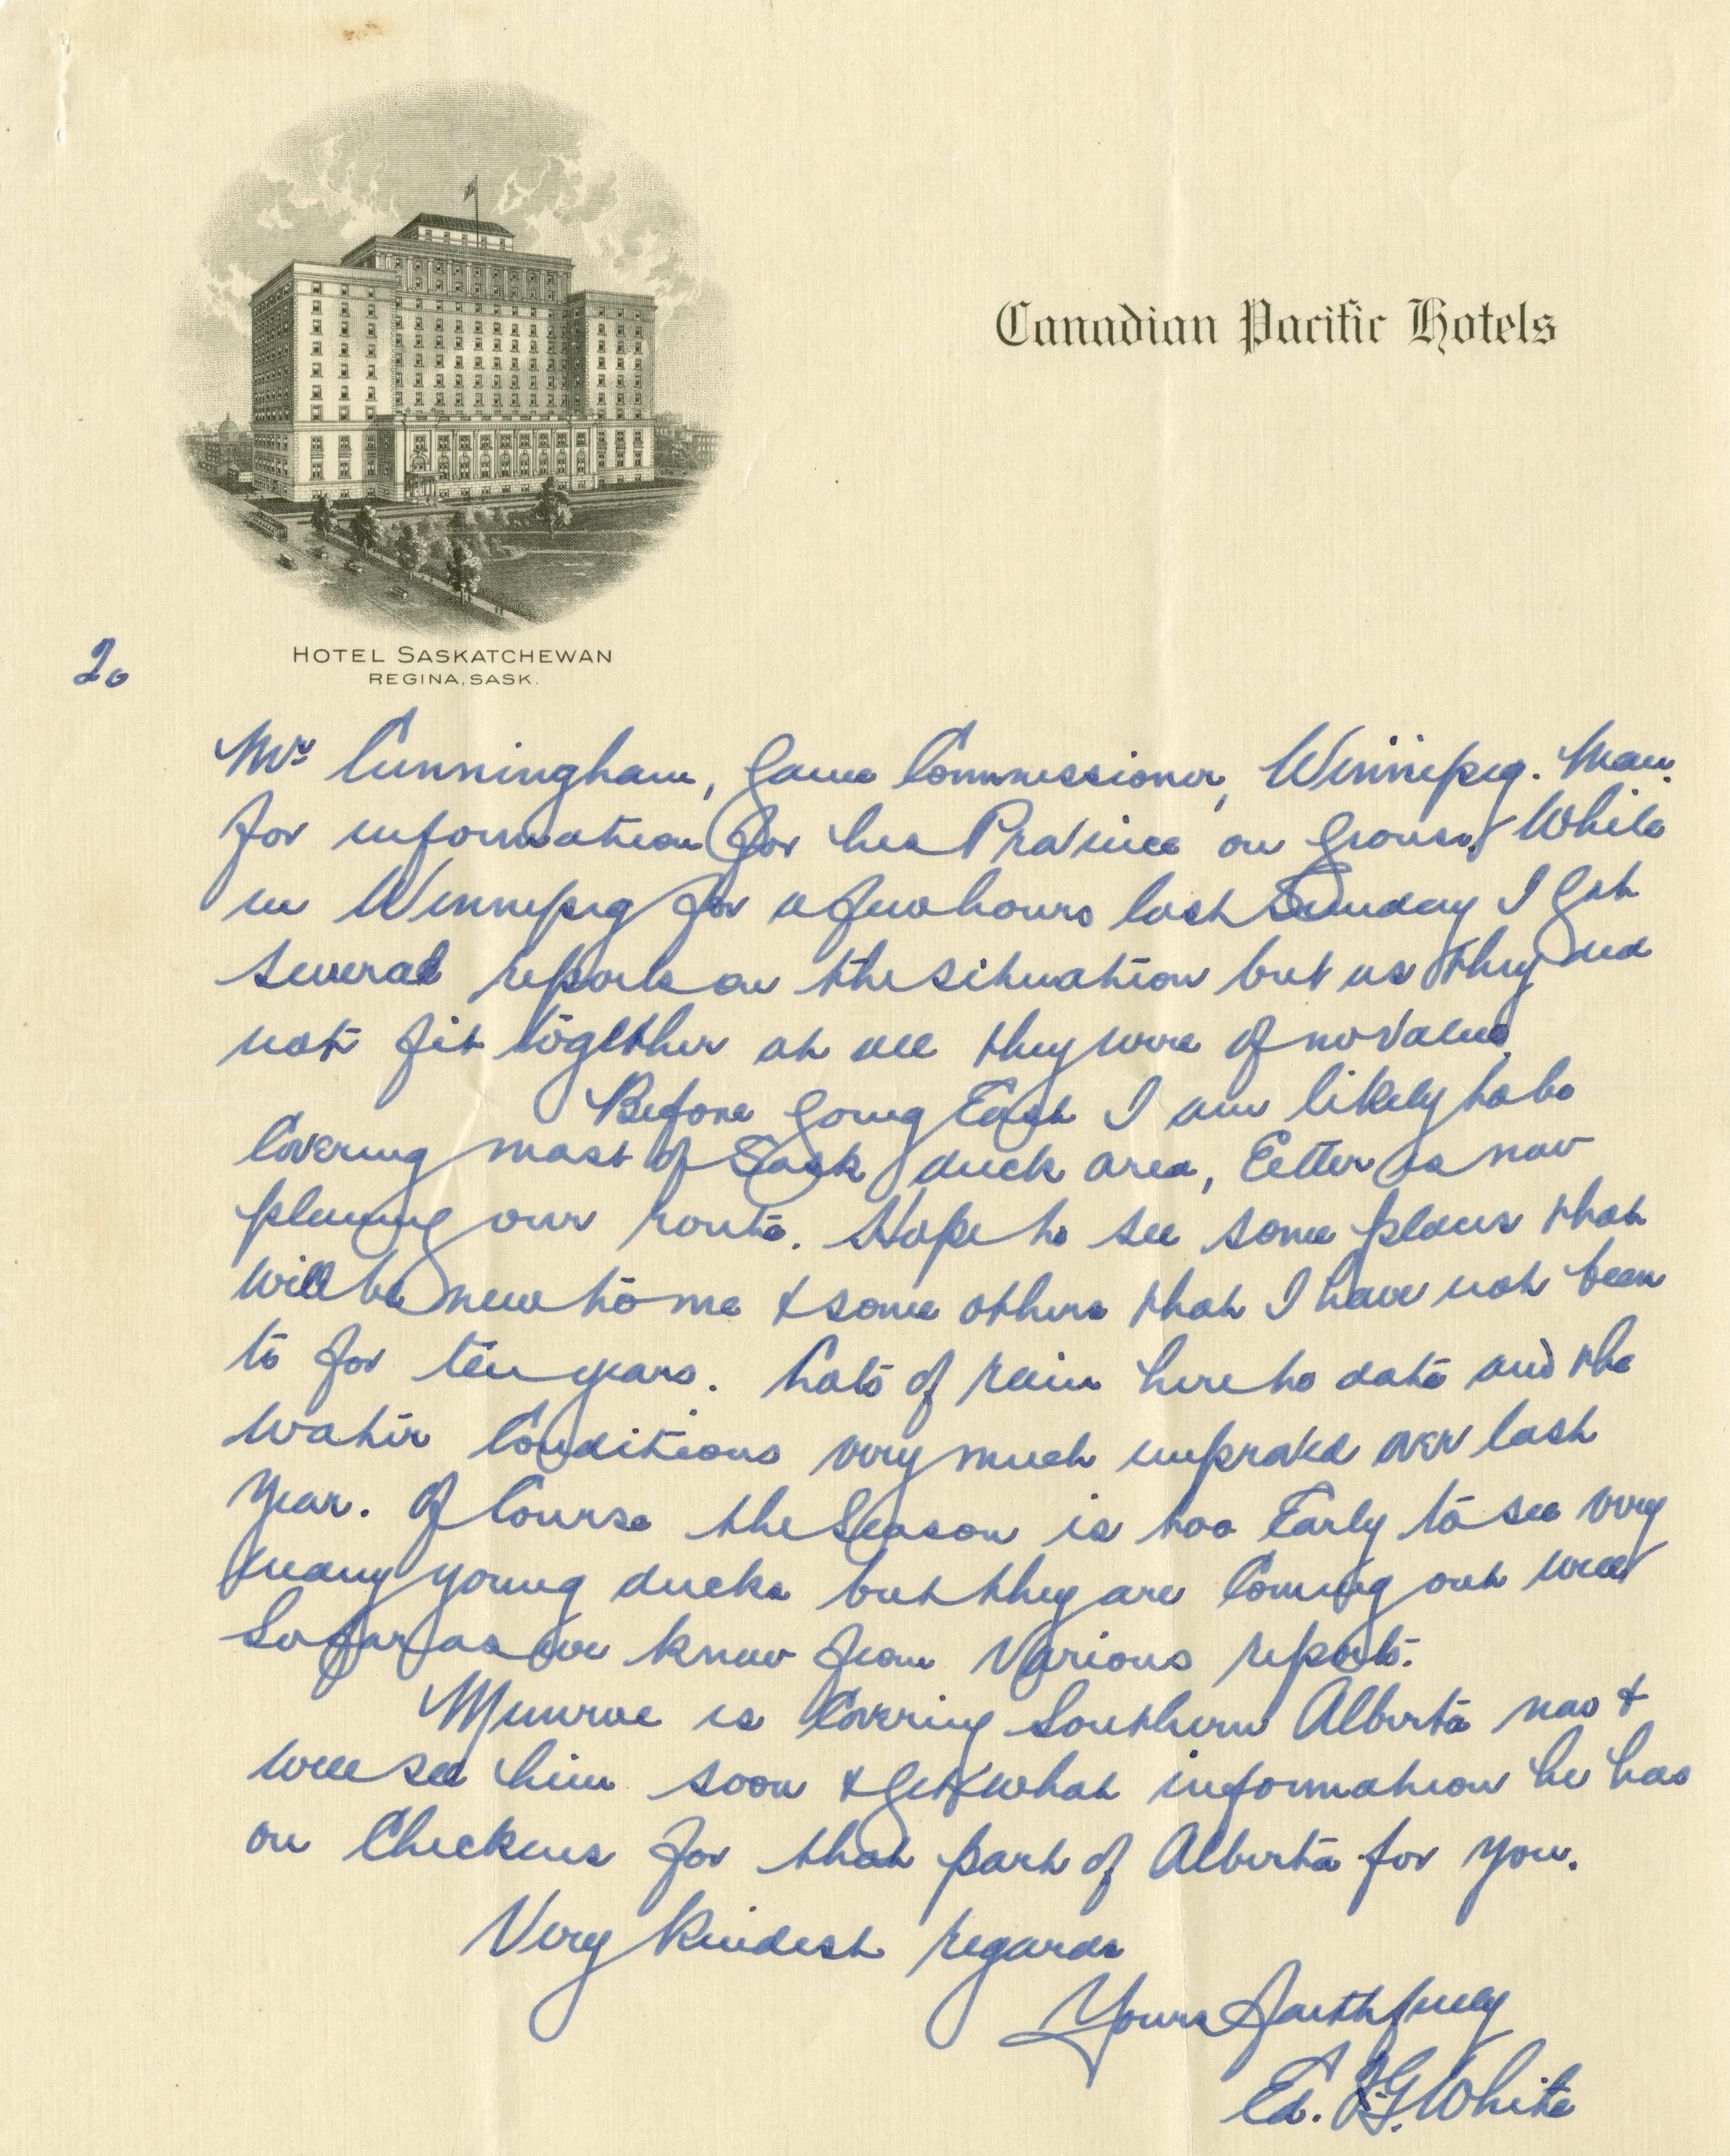 Canadian Pacific Hotels
HOTEL SASKATCHEWAN
REGINA, SASK.
2.
Mr. Cunningham, Game Commissioner, Winnipeg. Man.
for information for his Province on grouse. While
in Winnipeg for a few hours last Sunday I got
several reports on the situation but as they did
not fit together at all they were of no value.
Before going East I am likely to be
Covering most of Sask duck area, Eetter is now
planing our route. Hope to see some places that
will be new to me & some others that I have not been
to for ten years. Lots of rain here to date and the
water Conditions very much improved over last
year. Of Course the Season is too Early to see very
many young ducks but they are Coming out well
So far as we know from Various reports.
Munroe is Covering Southern Alberta now &
will see him soon & get what information he has
on Checkens for that part of Alberta for you.
Very kindest regards
Yours faithfully
Ed. G. White